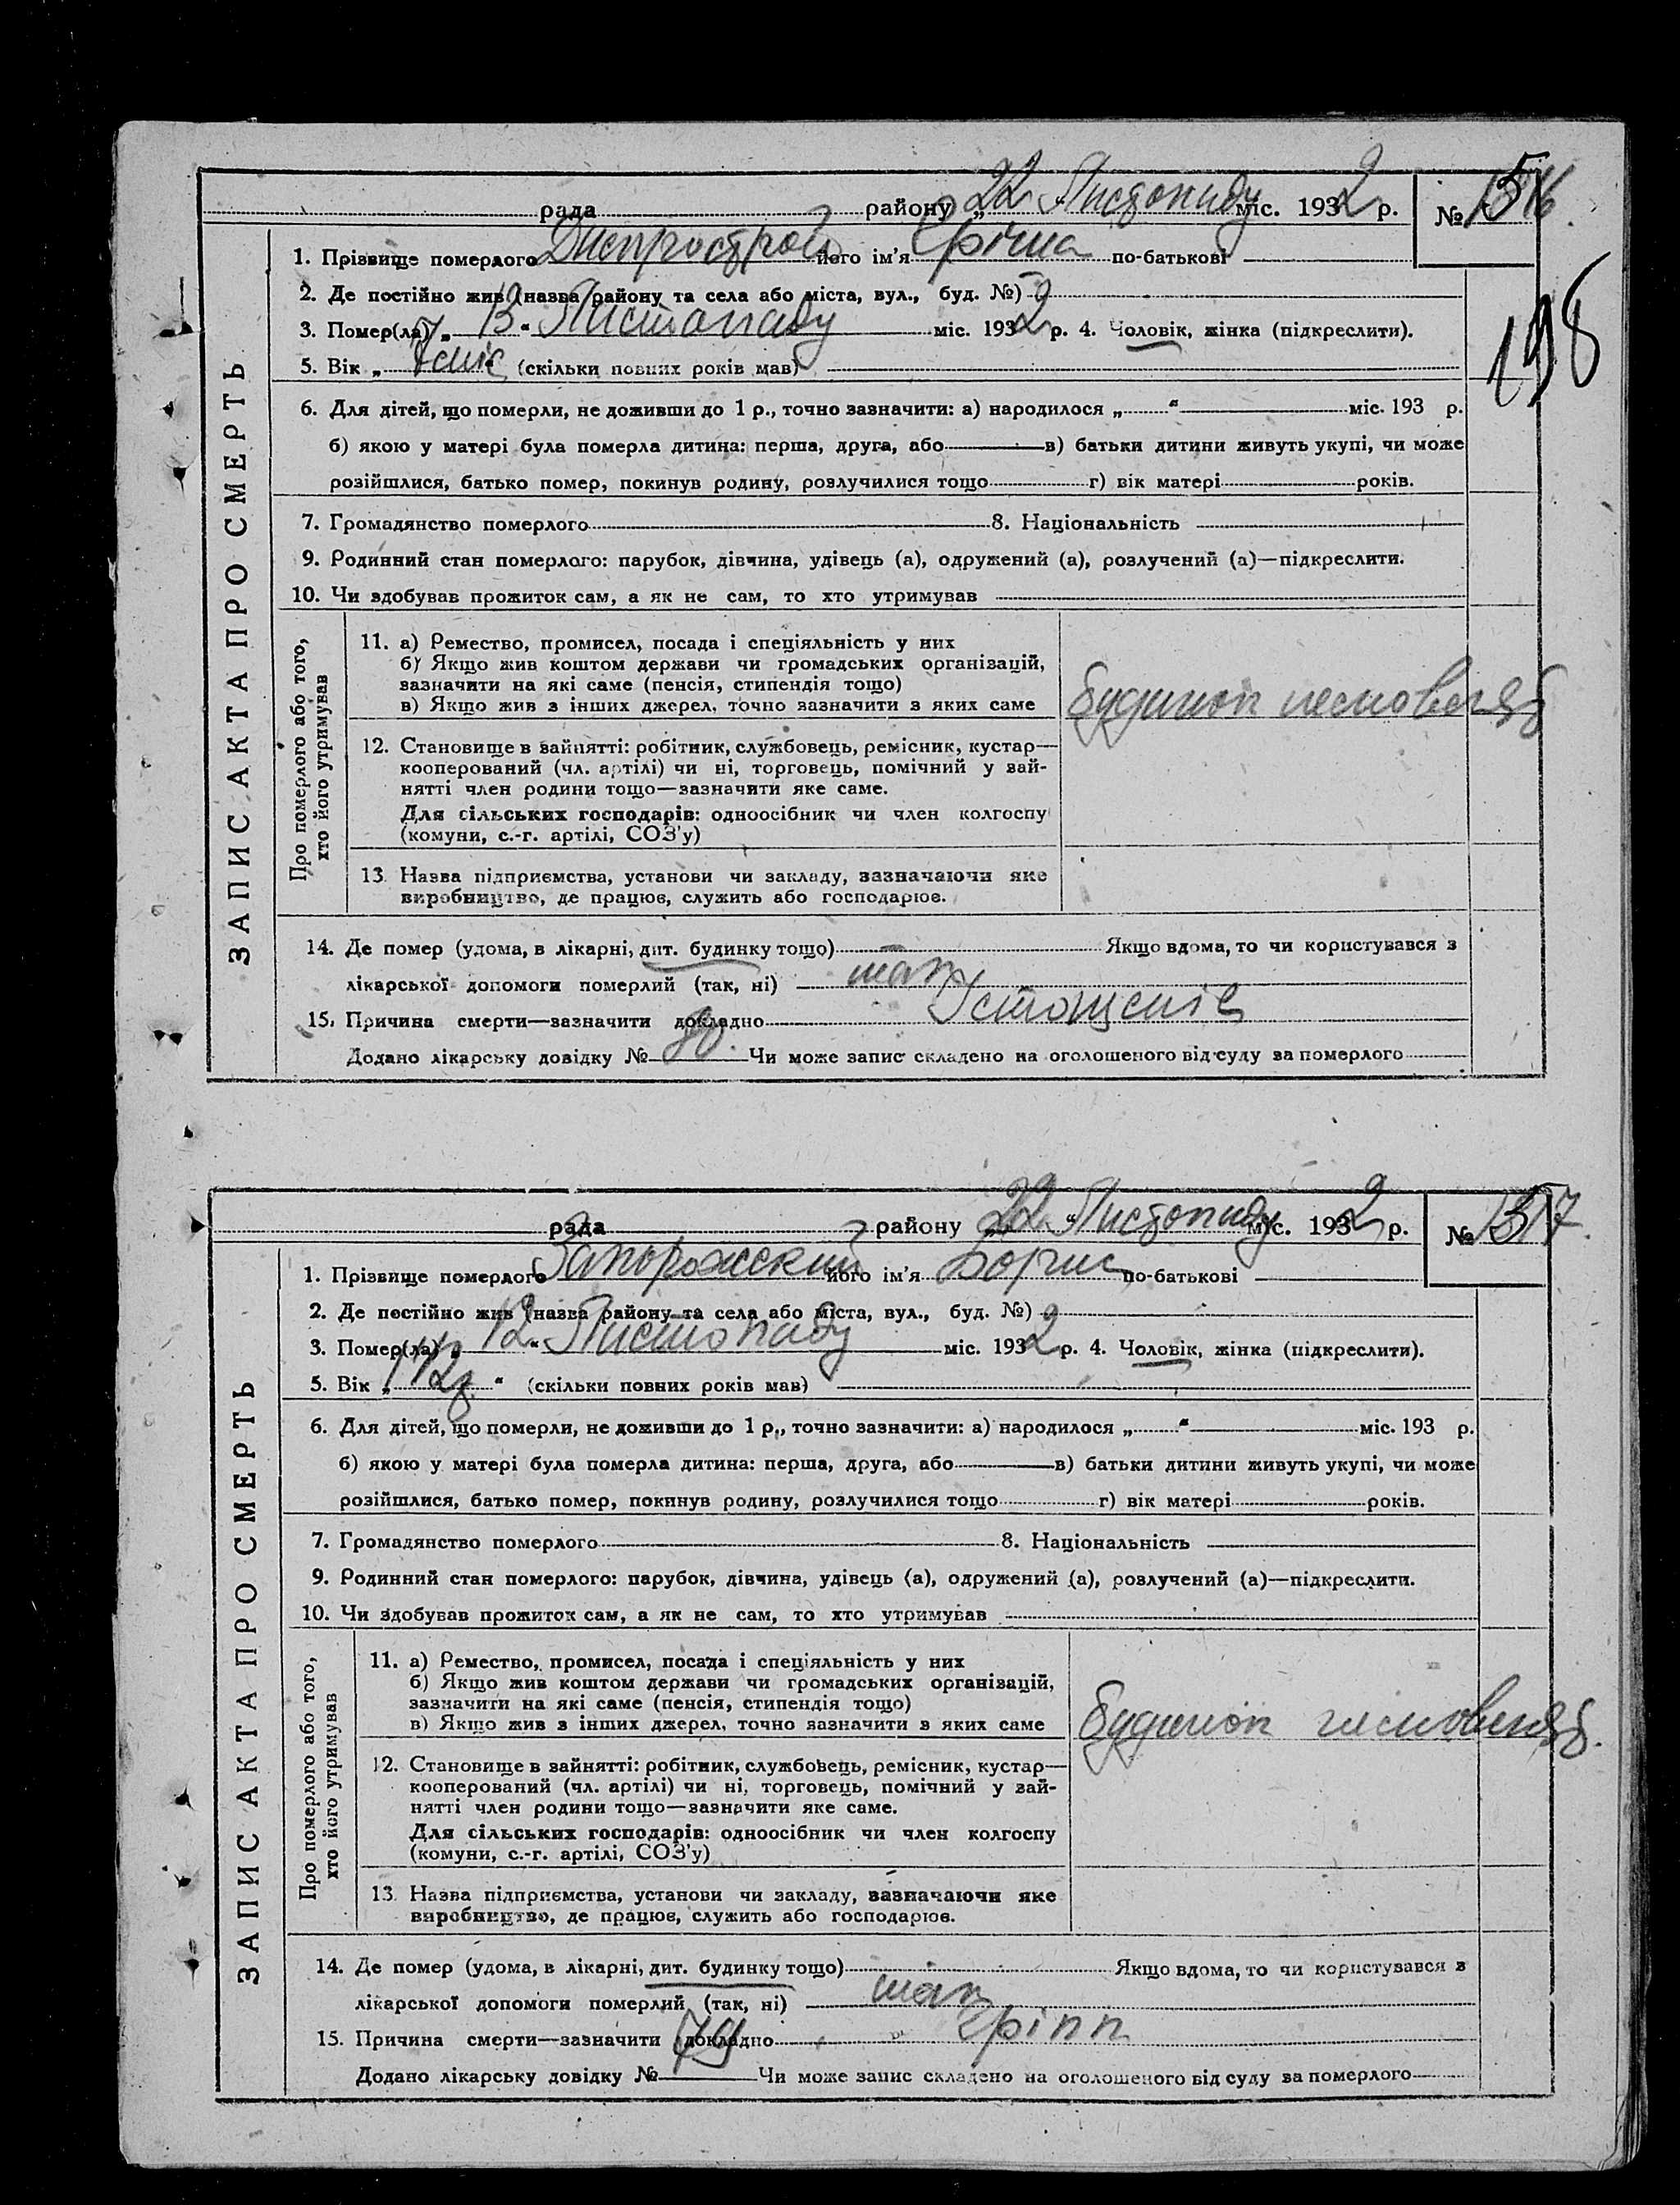 рада району „22 Листопаду міс. 1932 р. №
1. Прізвище померлого Днепрострой його ім'я по-батькові
2. Де постійно жив (назва району та села або міста, вул., буд. №)
3. Помер(ла) „13" Листопаду міс. 1932 р. 4. Чоловік, жінка (підкреслити).
198
5. Вік „ " (скільки повних років мав)
6. Для дітей, що померли, не доживши до 1 р., точно зазначити: а) народилося „ " міс. 193 р.
б) якою у матері була померла дитина: перша, друга, або в) батьки дитини живуть укупі, чи може
розійшлися, батько помер, покинув родину, розлучилися тощо г) вік матері років.
7. Громадянство померлого 8. Національність
9. Родинний стан померлого: парубок, дівчина, удівець (а), одружений (а), розлучений (а)—підкреслити.
10. Чи здобував прожиток сам, а як не сам, то хто утримував
ЗАПИС АКТА ПРО СМЕРТЬ
Про померлого або того,
хто його утримував
11. а) Ремество, промисел, посада і спеціяльність у них
б) Якщо жив коштом держави чи громадських організацій,
зазначити на які саме (пенсія, стипендія тощо)
в) Якщо жив з інших джерел, точно зазначити з яких саме
будинок немовлят
12. Становище в зайнятті: робітник, службовець, ремісник, кустар—
кооперований (чл. артілі) чи ні, торговець, помічний у зай-
нятті член родини тощо—зазначити яке саме.
Для сільських господарів: одноосібник чи член колгоспу
(комуни, с.-г. артілі, СОЗ'у)
13. Назва підприємства, установи чи закладу, зазначаючи яке
виробництво, де працює, служить або господарює.
14. Де помер (удома, в лікарні, дит. будинку тощо) Якщо вдома, то чи користувався з
лікарської допомоги померлий (так, ні) так
15. Причина смерти—зазначити докладно Істощеніе
Додано лікарську довідку № Чи може запис складено на оголошеного від суду за померлого
рада району „22" Листопаду міс. 1932 р. № 1517
1. Прізвище померлого Запорожский його ім'я Борис по-батькові
2. Де постійно жив (назва району та села або міста, вул., буд. №)
3. Помер(ла) „12" Листопаду міс. 1932 р. 4. Чоловік, жінка (підкреслити).
5. Вік „ " (скільки повних років мав)
6. Для дітей, що померли, не доживши до 1 р., точно зазначити: а) народилося „ " міс. 193 р.
б) якою у матері була померла дитина: перша, друга, або в) батьки дитини живуть укупі, чи може
розійшлися, батько помер, покинув родину, розлучилися тощо г) вік матері років.
7. Громадянство померлого 8. Національність
9. Родинний стан померлого: парубок, дівчина, удівець (а), одружений (а), розлучений (а)—підкреслити.
10. Чи здобував прожиток сам, а як не сам, то хто утримував
ЗАПИС АКТА ПРО СМЕРТЬ
Про померлого або того,
хто його утримував
11. а) Ремество, промисел, посада і спеціяльність у них
б) Якщо жив коштом держави чи громадських організацій,
зазначити на які саме (пенсія, стипендія тощо)
в) Якщо жив з інших джерел, точно зазначити з яких саме
будинок немовлят.
12. Становище в зайнятті: робітник, службовець, ремісник, кустар—
кооперований (чл. артілі) чи ні, торговець, помічний у зай-
нятті член родини тощо—зазначити яке саме.
Для сільських господарів: одноосібник чи член колгоспу
(комуни, с.-г. артілі, СОЗ'у)
13. Назва підприємства, установи чи закладу, зазначаючи яке
виробництво, де працює, служить або господарює.
14. Де помер (удома, в лікарні, дит. будинку тощо) Якщо вдома, то чи користувався з
лікарської допомоги померлий (так, ні) так
15. Причина смерти—зазначити докладно грипп
Додано лікарську довідку № 79 Чи може запис складено на оголошеного від суду за померлого